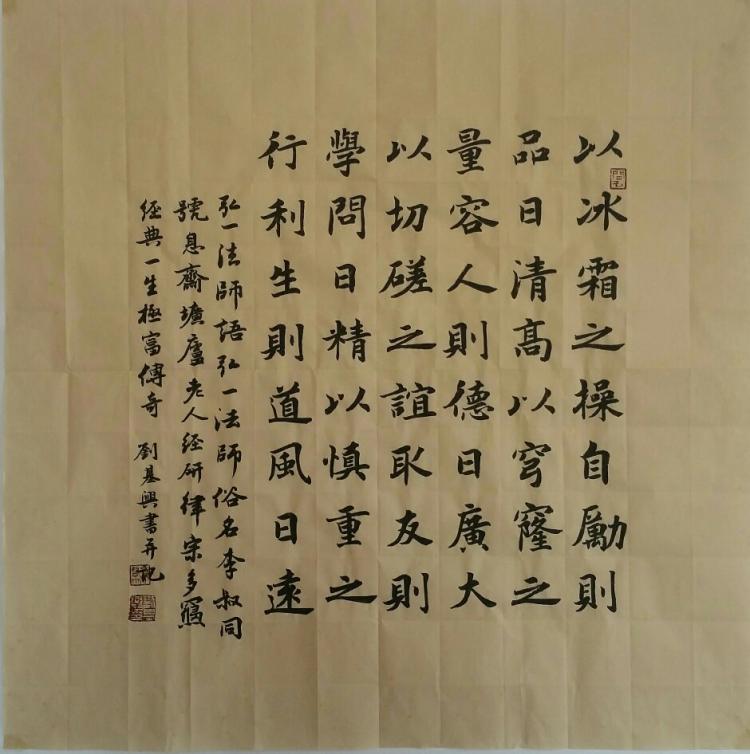 以冰霜之操自勵則
品日清高以穹窿之
量容人則德日廣大
以切磋之誼取友則
學問日精以慎重之
行利生則道風日遠
弘一法師語弘一法師俗名李叔同
號息齋壙廬老人經研律宗多
經典一生極富傳奇 劉基興書并記